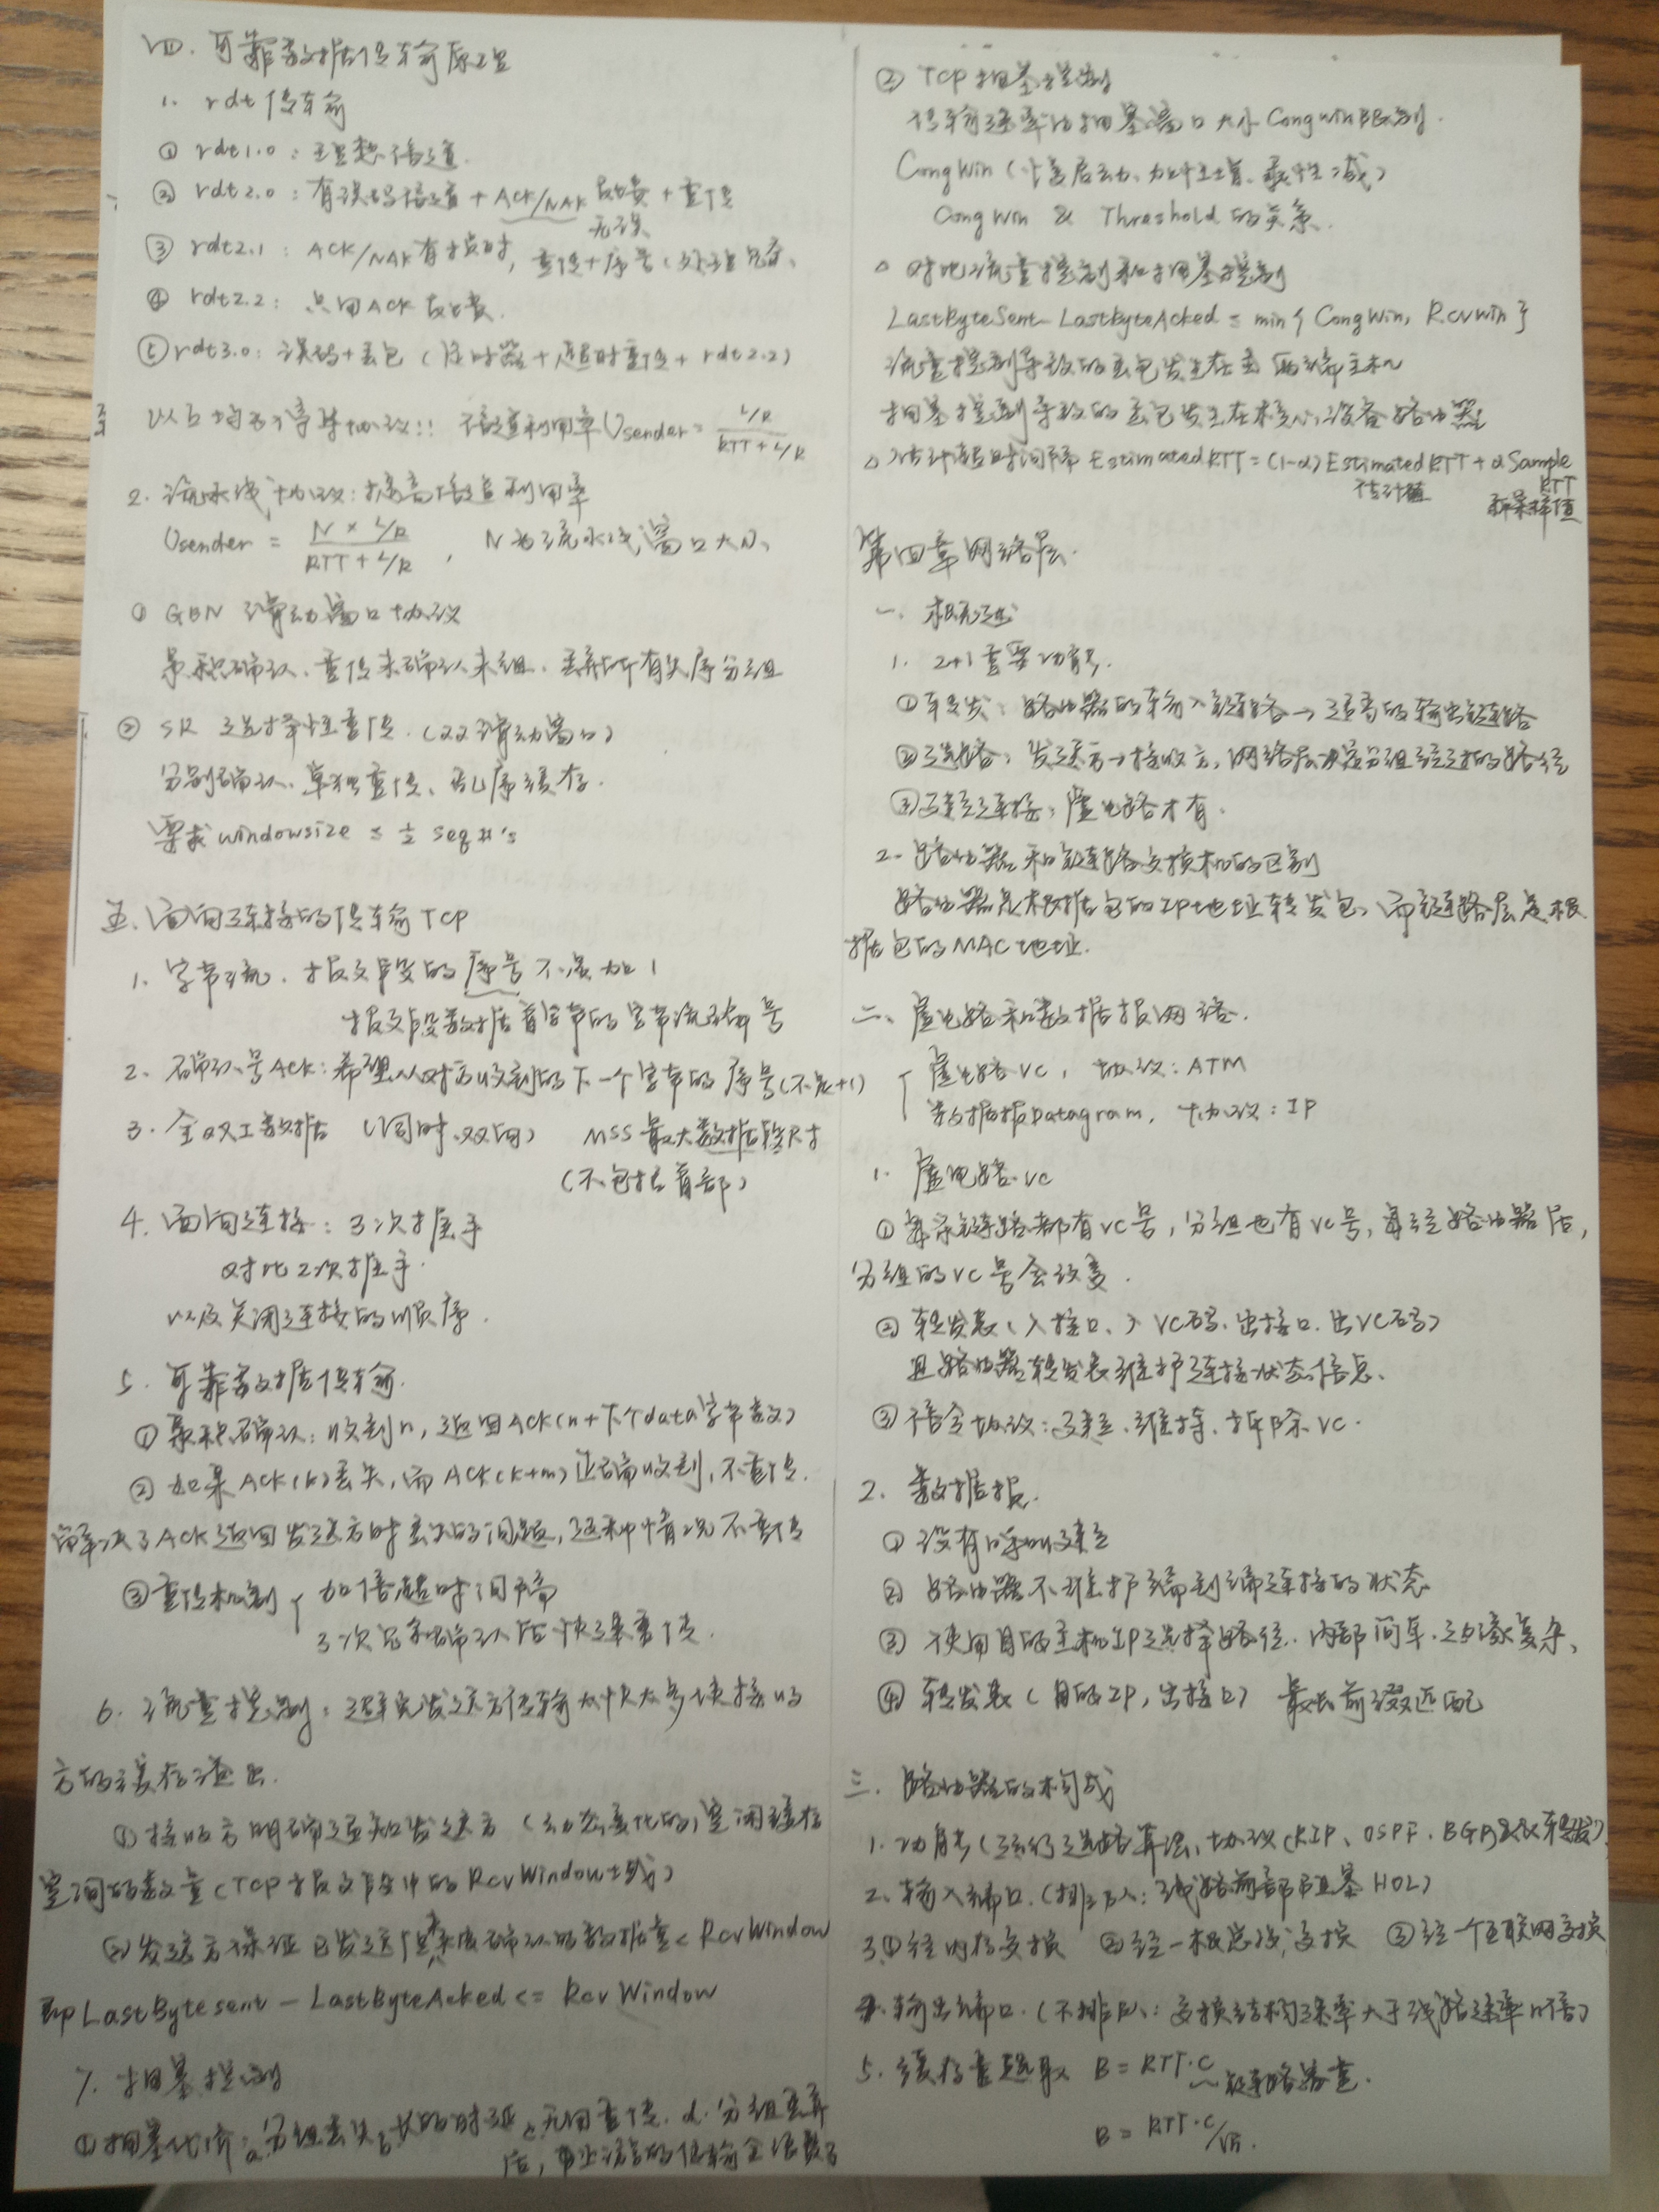 四. 可靠数据传输原理
1. rdt传输
① rdt1.0：理想信道.
② rdt2.0：有误码信道 + ACK/NAK反馈 + 重传
无误
③ rdt2.1：ACK/NAK有损时, 重传+序号(处理冗余、
④ rdt2.2：只用ACK反馈.
⑤ rdt3.0：误码+丢包 (定时器+超时重传+rdt2.2)
以上均为停等协议!! 信道利用率Usender = L/R / RTT + L/R
2. 流水线协议：提高信道利用率
Usender = N × L/R / RTT + L/R , N为流水线窗口大小、
① GBN 滑动窗口协议
累积确认、重传未确认未组、丢弃所有失序分组
② SR 选择性重传. (双滑动窗口)
分别确认、单独重传、乱序缓存.
要求windowsize ≤ ½ seq #'s
五. 面向连接的传输TCP
1. 字节流. 报文段的序号不是加1
报文段数据首字节的字节流编号
2. 确认号ACK：希望从对方收到的下一个字节的序号(不是+1)
3. 全双工数据 (同时.双向) MSS最大数据段尺寸
(不包括首部)
4. 面向连接：3次握手
对比2次握手.
以及关闭连接的顺序.
5. 可靠数据传输.
① 累积确认：收到n, 返回ACK(n+下个data字节数)
② 如果ACK(k)丢失, 而ACK(k+m)正确收到, 不重传.
解决了ACK返回发送方时丢失的问题, 这种情况不重传
③ 重传机制 { 加倍超时间隔
3次冗余确认后快速重传.
6. 流量控制：避免发送方传输太快太多使接收
方的缓存溢出.
① 接收方明确通知发送方 (动态变化的)空闲缓存
空间的数量 (TCP报文段中的RcvWindow域)
② 发送方保证已发送但未被确认的数据量< RcvWindow
即LastBytesent - LastByteAcked <= RcvWindow
7. 拥塞控制
① 拥塞代价：a.分组丢失 b.长的时延 c.无用重传. d.分组丢弃
后, 上游的传输全浪费了
② TCP拥塞控制
传输速率由拥塞窗口大小CongWin限制.
CongWin (慢启动、加性增、乘性减)
CongWin & Threshold的关系.
△ 对比流量控制和拥塞控制
LastByteSent-LastByteAcked ≤ min{CongWin, RcvWin}
流量控制导致的丢包发生在去两端主机
拥塞控制导致的丢包发生在核心设备路由器
△ 估计超时间隔 EstimatedRTT = (1-α)EstimatedRTT + αSample
RTT
估计值 采样值
第四章网络层.
一. 概述
1. 2+1重要功能.
① 转发：路由器的输入链路→适当的输出链路
② 选路：发送方→接收方, 网络层决定分组经过的路径
③ 建立连接：虚电路才有.
2. 路由器和链路交换机的区别
路由器是根据包的IP地址转发包、而链路层是根
据包的MAC地址.
二、虚电路和数据报网络.
{ 虚电路VC, 协议：ATM
数据报Datagram, 协议：IP
1. 虚电路.VC
① 每条链路都有VC号, 分组也有VC号, 每经路由器后,
分组的VC号会改变.
② 转发表(入接口、入VC码、出接口、出VC码)
且路由器转发表维护连接状态信息、
③ 信令协议：建立、维持、拆除VC.
2. 数据报.
① 没有呼叫建立
② 路由器不维护端到端连接的状态
③ 使用目的主机IP选择路径. 内部简单.边缘复杂、
④ 转发表 (目的IP, 出接口) 最长前缀匹配
三. 路由器的构成
1. 功能(运行选路算法, 协议(RIP、OSPF、BGP)以及转发)
2. 输入端口.(排队：线路前部阻塞HOL)
3. ① 经内存交换 ② 经一根总线交换 ③ 经一个互联网交换
4. 输出端口.(不排队：交换结构速率大于线路速率n倍)
5. 缓存量选取 B = RTT·C 链路容量.
B = RTT·C/√n.